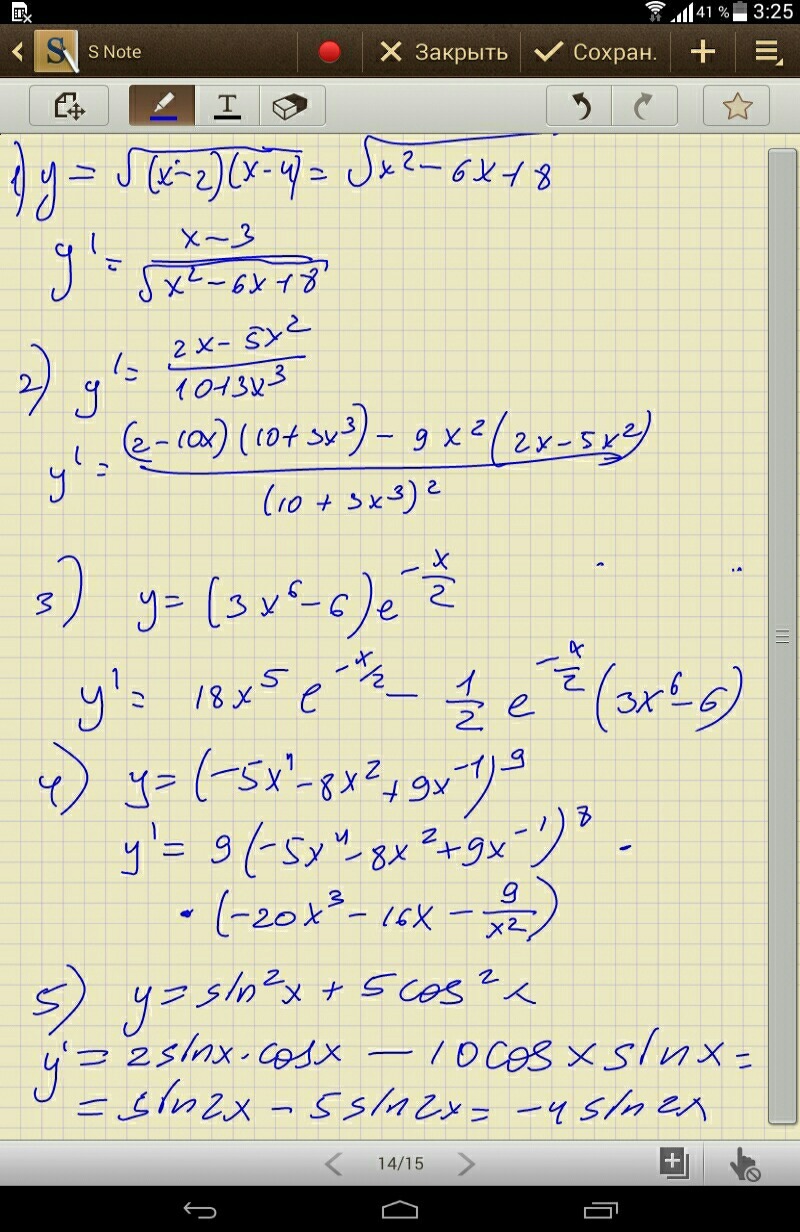 41 % 3:25
S Note Закрыть Сохран.
T
1) y = √(x-2)(x-4) = √x² - 6x + 8
y' = x-3 / √x² - 6x + 8
2) y' = 2x - 5x² / 10+3x³
y' = (2-10x)(10+3x³) - 9x²(2x-5x²) / (10+3x³)²
3) y = (3x⁶-6)e^(-x/2)
y' = 18x⁵ e^(-x/2) - 1/2 e^(-x/2) (3x⁶-6)
4) y = (-5x⁴-8x²+9x⁻¹)⁹
y' = 9(-5x⁴-8x²+9x⁻¹)⁸ ·
· (-20x³-16x-9/x²)
5) y = sin²x + 5cos²x
y' = 2sinx·cosx - 10cosx sinx =
= sin2x - 5sin2x = -4sin2x
14/15